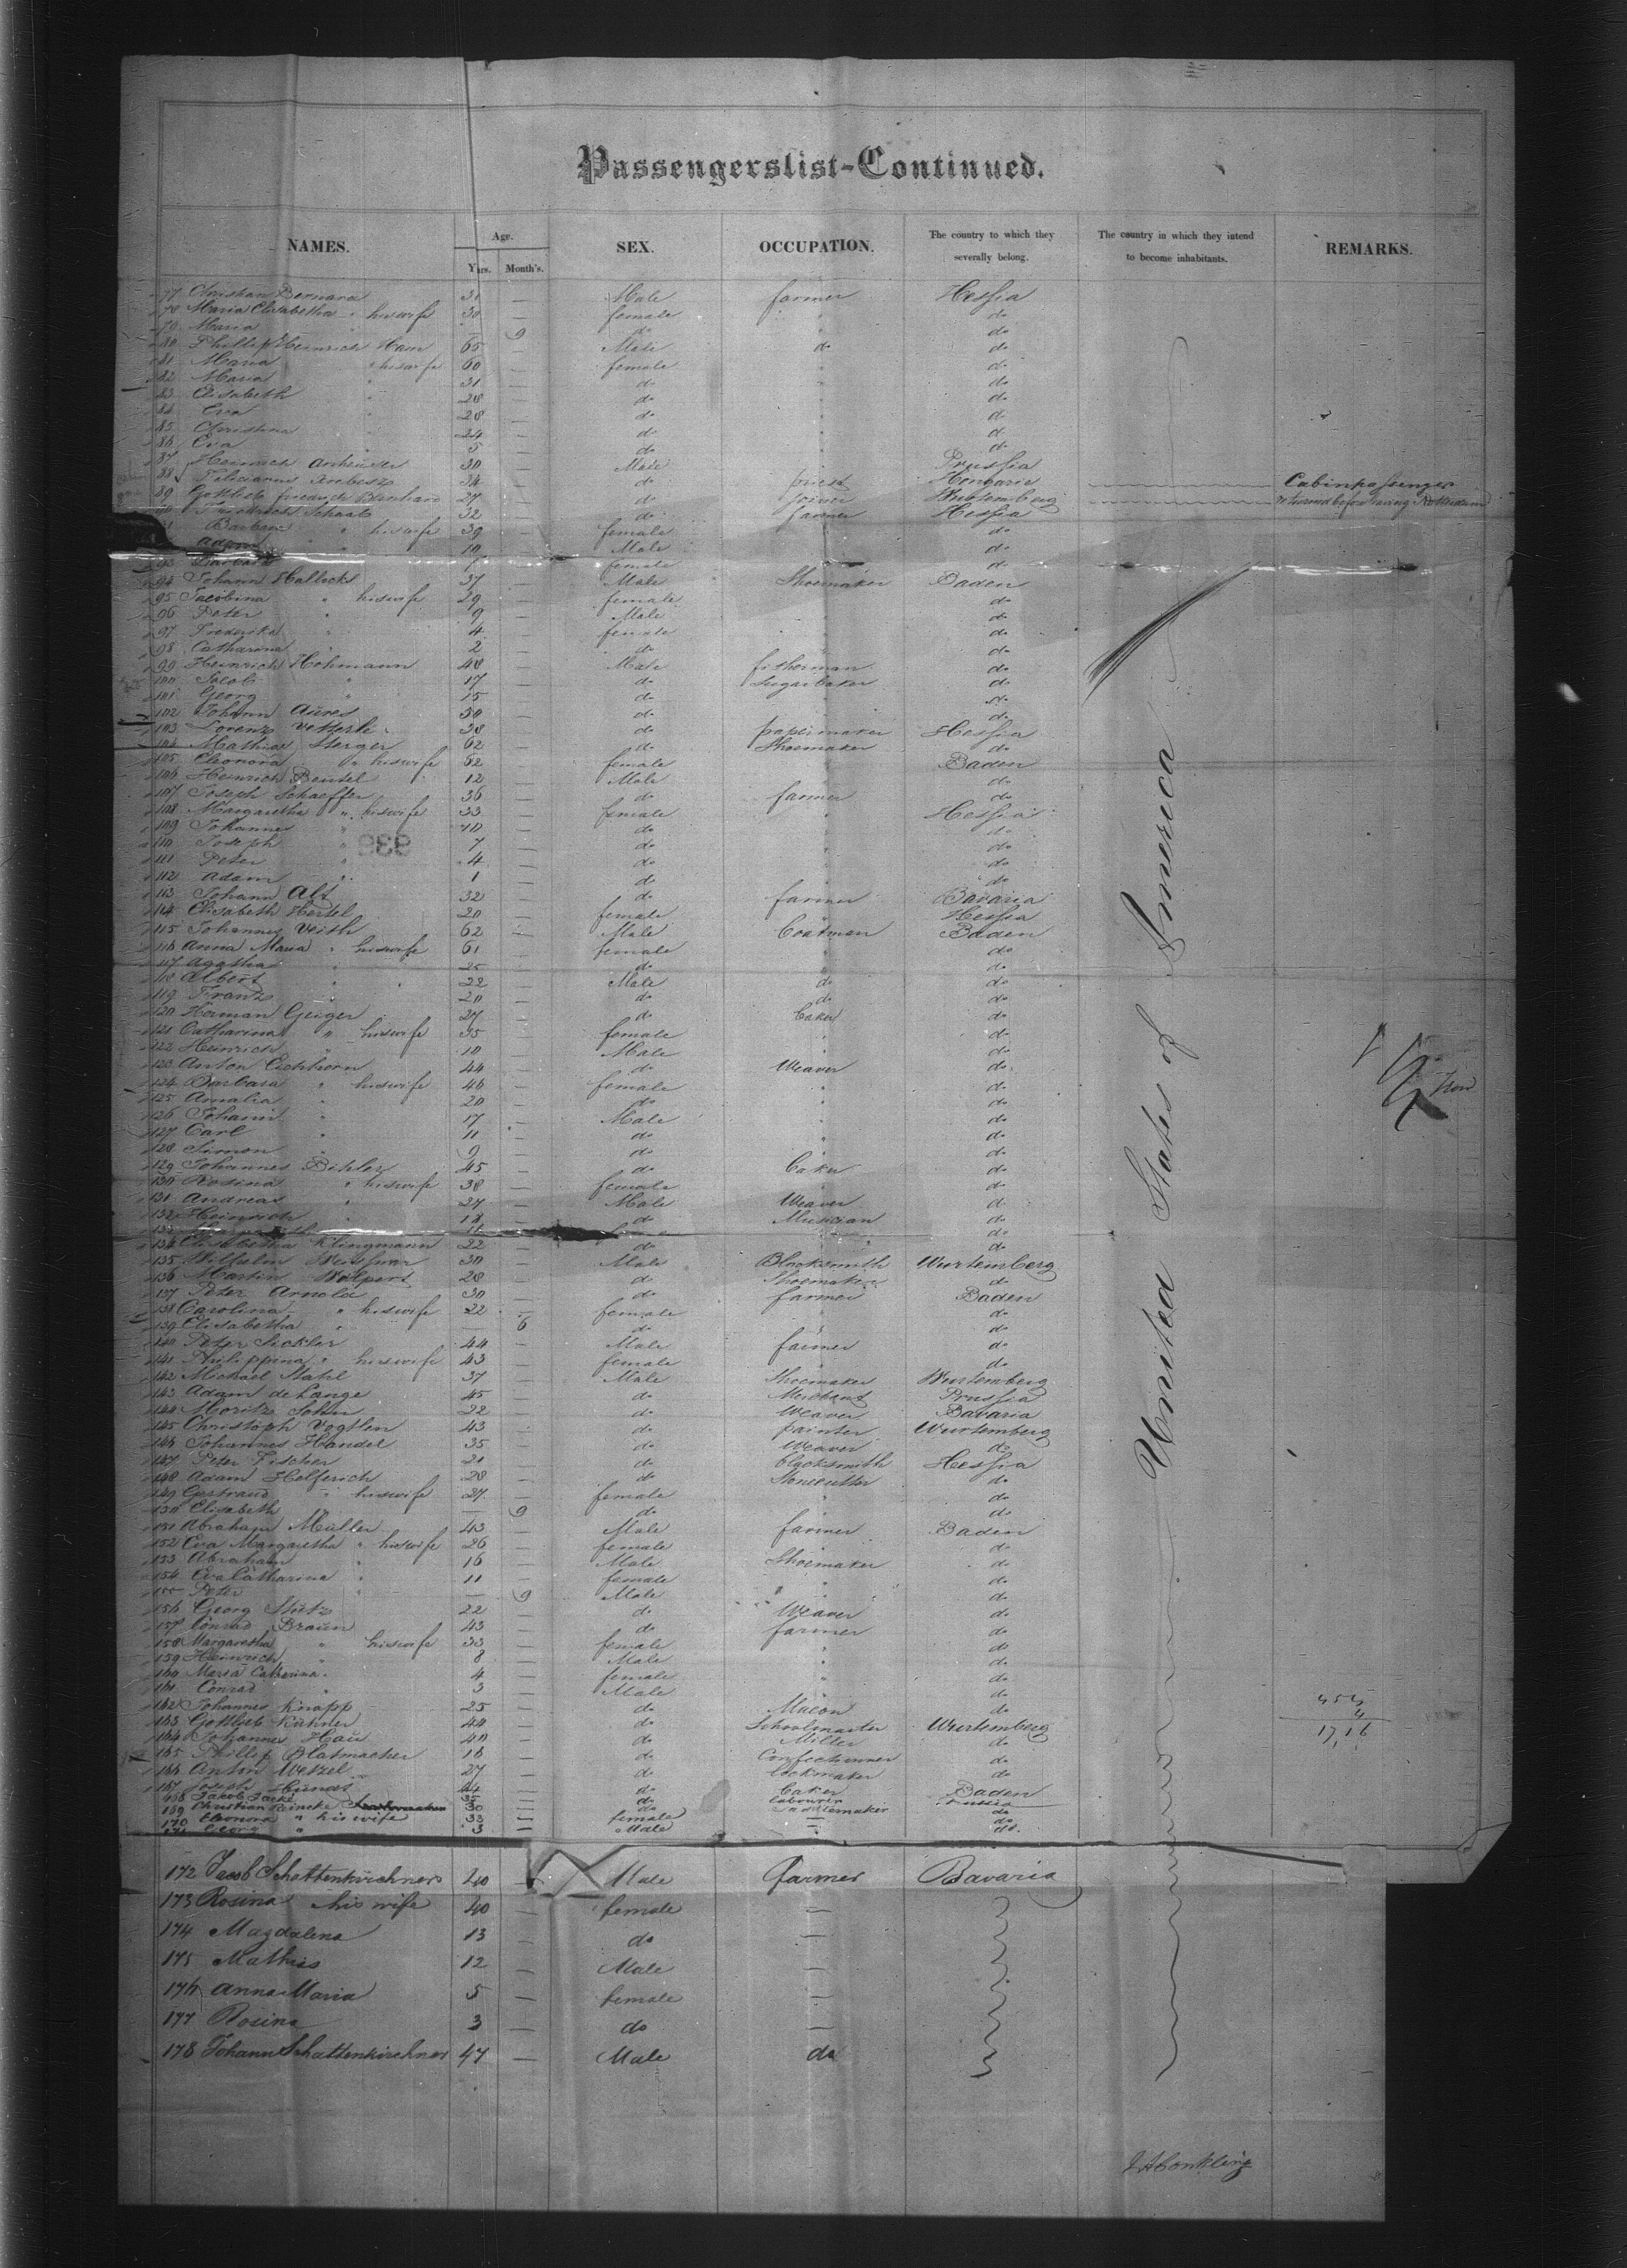 Passengerslist-Continued.
NAMES. Age. SEX. OCCUPATION. The country to which they severally belong. The country in which they intend to become inhabitants. REMARKS.
Yars. Month's.
77 Christian Bernard 31 — Male farmer Hessia
78 Maria Elisabetha " his wife 30 — female " do
79 Maria " — 9 do " do
80 Phillip Heinrich Ham 65 — Male do do
81 Maria " his wife 60 — female " do
82 Maria " 31 — do " do
83 Elisabeth " 28 — do " do
84 Eva " 28 — do " do
85 Christina " 24 — do " do
86 Eva " 5 — do " do
87 Heinrich 30 — Male Prussia
88 34 — do priest Hongarie Cabinpassenger
89 Gottlieb Friedrich Bernhard 27 — do joiner Wurtemberg returned before leaving Rotterdam
Friedrich Schaab 32 — do farmer Hessia
Barbara " his wife 39 — female do
Adam 10 — Male do
93 Barbara female do
94 Johann 37 — Male Shoemaker Baden
95 Jacobina " his wife 29 — female " do
96 Peter " 9 — Male " do
97 Frederika " 4 — female " do
98 Catharina " 2 — do " do
99 Heinrich Hohmann 48 — Male fisherman do
100 Jacob " 17 — do Sugarbaker do
101 Georg " 15 — do " do
102 Johann Aures 30 — do " do
103 Lorenz Vetterli 38 — do papermaker Hessia
104 Mathias Sterger 62 — do Shoemaker do
105 Eleonora " his wife 62 — female Baden
106 Heinrich Beutel 12 — Male do
107 Joseph Schaeffer 36 — do farmer do
108 Margaretha " his wife 33 — female " Hessia
109 Johannes " 10 — do " do
110 Joseph " 7 — do " do
111 Peter " 4 — do " do
112 Adam " 1 — do " do
113 Johann Alt 32 — do farmer Bavaria
114 Elisabeth Hertel 20 — female " Hessia
115 Johannes Veith 62 — Male Boatman Baden
116 Anna Maria " his wife 61 — female " do
117 Agatha " 25 — do " do
118 Albert " 22 — Male do do
119 Franz 20 — do do do
120 Herman Geiger 27 — do baker do
121 Catharina " his wife 35 — female " do
122 Heinrich " 10 — Male " do
123 Anton Eichhorn 44 — do Weaver do
124 Barbara " his wife 46 — female " do
125 Amalia " 20 — do " do
126 Johann " 17 — Male " do
127 Carl " 11 — do " do
128 Simon " 9 — do " do
129 Johannes Bihler 45 — do baker do
130 Rosina " his wife 38 — female " do
131 Andreas " 27 — Male Weaver do
132 Heinrich " — do Musician do
133 do
134 Elisabetha Klingmann 22 — do do
135 Wilhelm 30 — Male Blacksmith Wurtemberg
136 Martin Wolpert 28 — do Shoemaker do
137 Peter Arnold 30 — do farmer Baden
138 Carolina " his wife 22 — female " do
139 Elisabetha " — 6 do " do
140 Peter Sickler 44 — Male farmer do
141 Philippina " his wife 43 — female " do
142 Michael Stahl 37 — Male Shoemaker Wurtemberg
143 Adam de Lange 45 — do Merchant Prussia
144 Moritz Sohn 22 — do Weaver Bavaria
145 Christoph Vogtlen 43 — do painter Wurtemberg
146 Johannes Handel 35 — do Weaver do
147 Peter Fischer 21 — do blacksmith Hessia
148 Adam Helferich 28 — do Stonecutter do
149 Gertraud " his wife 27 — female " do
150 Elisabeth " — 9 do " do
151 Abraham Müller 43 — Male farmer Baden
152 Eva Margaretha " his wife 26 — female " do
153 Abraham " 16 — Male Shoemaker do
154 Eva Catharina " 11 — female " do
155 Peter " — 9 Male " do
156 Georg Stutz 22 — do Weaver do
157 Conrad Braun 43 — do farmer do
158 Margaretha " his wife 33 — female " do
159 Heinrich " 8 — Male " do
160 Maria Catherina 4 — female " do
161 Conrad " 3 — Male " do
162 Johannes Knapp 25 — do Macon do
163 Gottlieb Kühner 44 — do Schoolmaster Wurtemberg
164 Johannes Hau 40 — do Miller do
165 Phillip Blatmacher 16 — do Confectioner do
166 Anton Wetzel 27 — do Lockmaker do
167 Joseph 24 — do baker Baden
168 Jacob 35 — do labourer Prussia
169 Christian Reincke 30 — do do
170 Eleonora " his wife 33 — female — do
171 Georg " 3 — Male — do.
172 Jacob Schattenkirchner 40 — Male farmer Bavaria
173 Rosina his wife 40 — female —
174 Magdalena 13 — do —
175 Mathias 12 — Male —
176 Anna Maria 5 — female —
177 Rosina 3 — do —
178 Johann Schattenkirchner 47 — Male do
United States of America
939
454
4
1716
J A Conkling